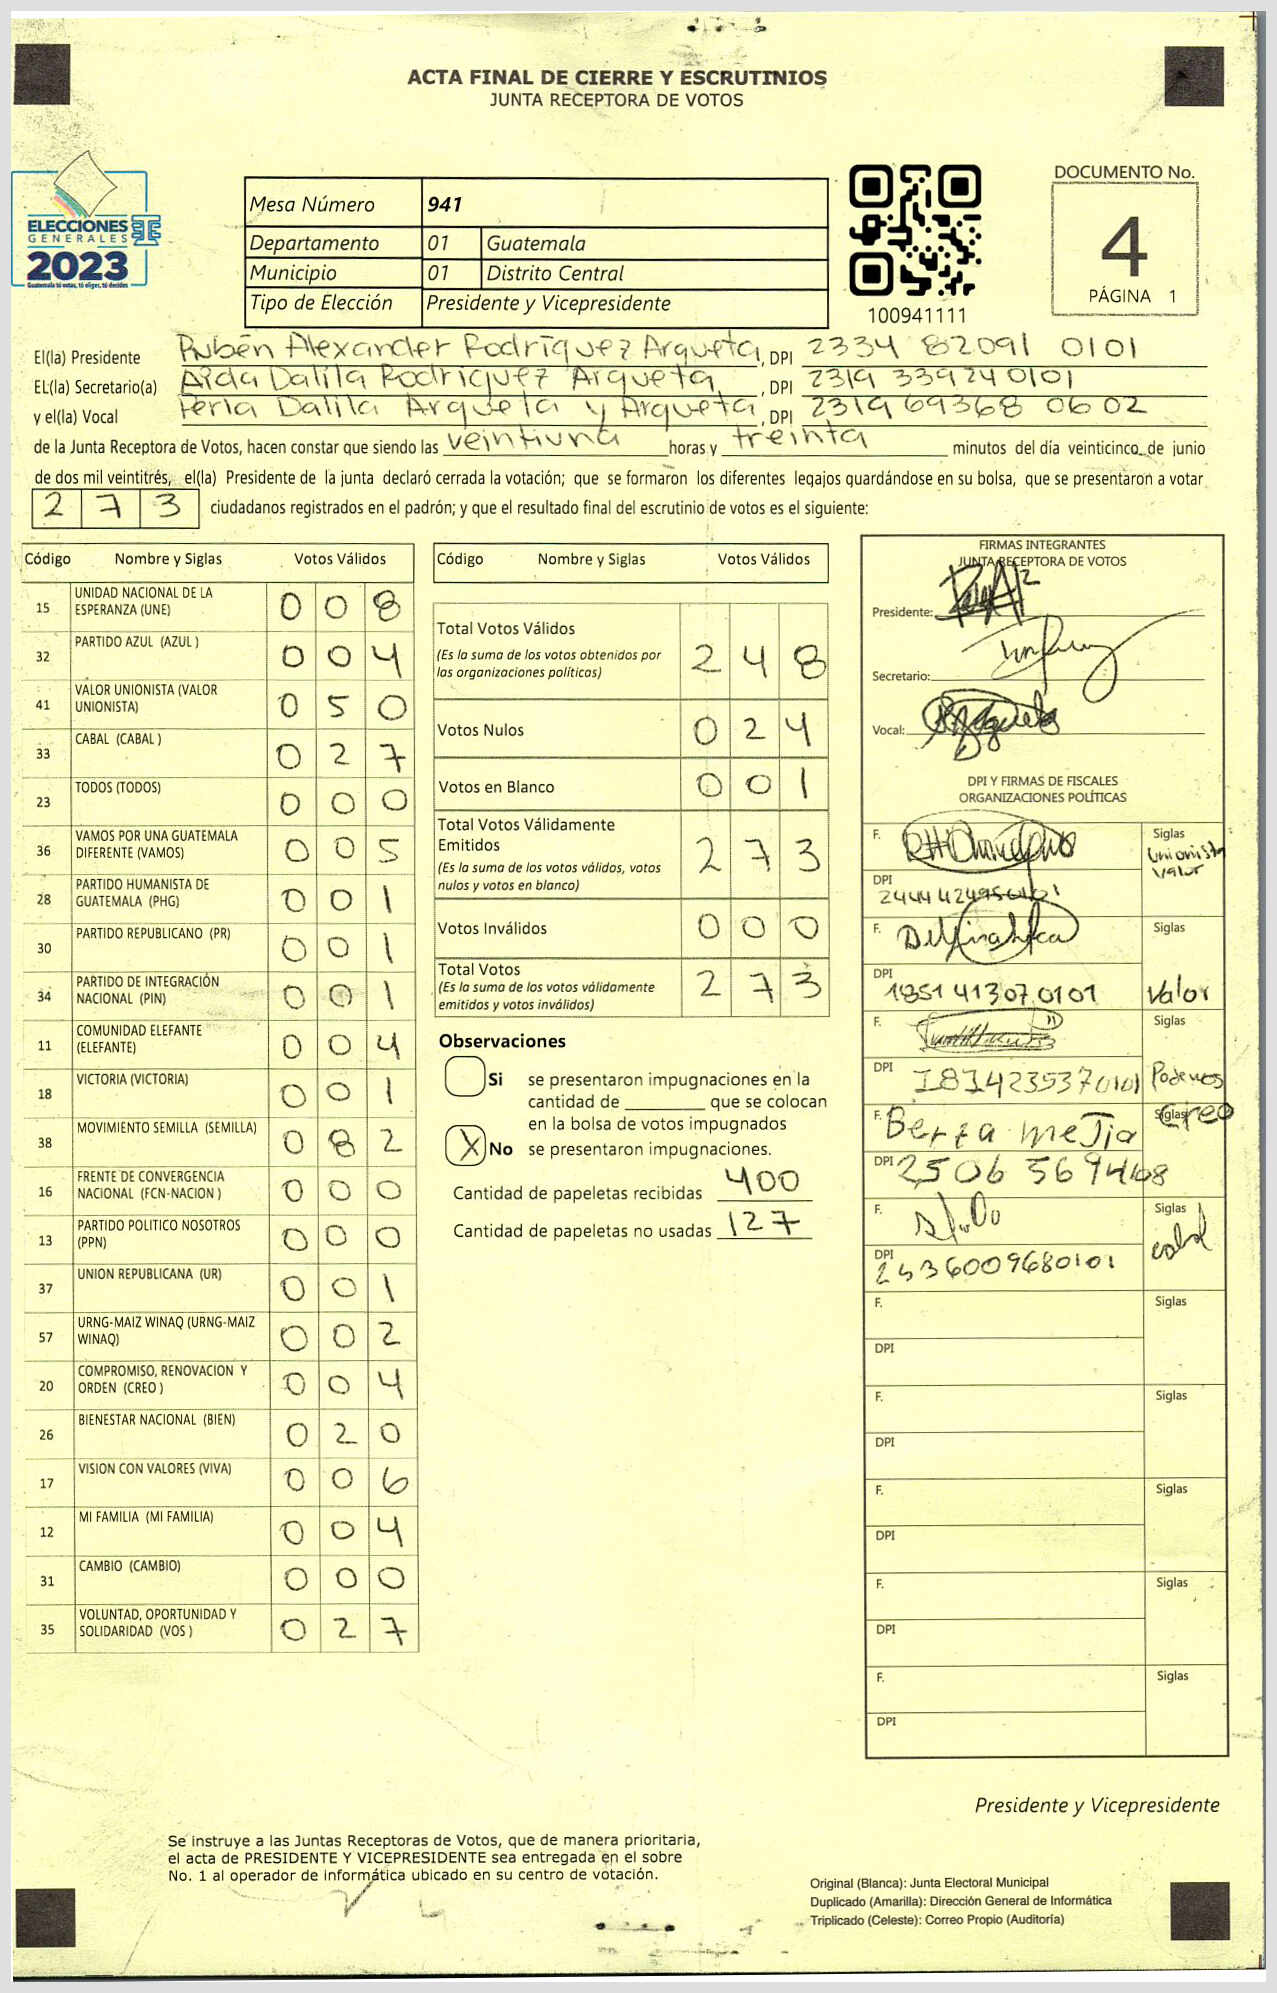 ACTA FINAL DE CIERRE Y ESCRUTINIOS
JUNTA RECEPTORA DE VOTOS
ELECCIONES
GENERALES
2023
Guatemala tú votas, tú eliges, tú decides
Mesa Número 941
Departamento 01 Guatemala
Municipio 01 Distrito Central
Tipo de Elección Presidente y Vicepresidente
100941111
DOCUMENTO No.
4
PÁGINA 1
El(la) Presidente Rubén Alexander Rodríguez Argueta, DPI 2334 82091 0101
EL(la) Secretario(a) Aida Dalila Rodríguez Argueta, DPI 2319 339240101
y el(la) Vocal Dalila Argueta y Argueta, DPI 2319 69368 0602
de la Junta Receptora de Votos, hacen constar que siendo las veintiuna horas y treinta minutos del día veinticinco de junio
de dos mil veintitrés, el(la) Presidente de la junta declaró cerrada la votación; que se formaron los diferentes legajos guardándose en su bolsa, que se presentaron a votar
273 ciudadanos registrados en el padrón; y que el resultado final del escrutinio de votos es el siguiente:
Código Nombre y Siglas Votos Válidos
15 UNIDAD NACIONAL DE LA ESPERANZA (UNE) 008
32 PARTIDO AZUL (AZUL ) 004
41 VALOR UNIONISTA (VALOR UNIONISTA) 050
33 CABAL (CABAL ) 027
23 TODOS (TODOS) 000
36 VAMOS POR UNA GUATEMALA DIFERENTE (VAMOS) 005
28 PARTIDO HUMANISTA DE GUATEMALA (PHG) 001
30 PARTIDO REPUBLICANO (PR) 001
34 PARTIDO DE INTEGRACIÓN NACIONAL (PIN) 001
11 COMUNIDAD ELEFANTE (ELEFANTE) 004
18 VICTORIA (VICTORIA) 001
38 MOVIMIENTO SEMILLA (SEMILLA) 082
16 FRENTE DE CONVERGENCIA NACIONAL (FCN-NACION ) 000
13 PARTIDO POLITICO NOSOTROS (PPN) 000
37 UNION REPUBLICANA (UR) 001
57 URNG-MAIZ WINAQ (URNG-MAIZ WINAQ) 002
20 COMPROMISO, RENOVACION Y ORDEN (CREO ) 004
26 BIENESTAR NACIONAL (BIEN) 020
17 VISION CON VALORES (VIVA) 006
12 MI FAMILIA (MI FAMILIA) 004
31 CAMBIO (CAMBIO) 000
35 VOLUNTAD, OPORTUNIDAD Y SOLIDARIDAD (VOS ) 027
Código Nombre y Siglas Votos Válidos
Total Votos Válidos 248
(Es la suma de los votos obtenidos por
las organizaciones politicas)
Votos Nulos 024
Votos en Blanco 001
Total Votos Válidamente
Emitidos 273
(Es la suma de los votos válidos, votos
nulos y votos en blanco)
Votos Inválidos 000
Total Votos 273
(Es la suma de los votos válidamente
emitidos y votos inválidos)
Observaciones
Si se presentaron impugnaciones en la
cantidad de ________ que se colocan
en la bolsa de votos impugnados
X No se presentaron impugnaciones.
Cantidad de papeletas recibidas 400
Cantidad de papeletas no usadas 127
FIRMAS INTEGRANTES
JUNTA RECEPTORA DE VOTOS
Presidente:
Secretario:
Vocal:
DPI Y FIRMAS DE FISCALES
ORGANIZACIONES POLÍTICAS
F. Siglas
Unionista
Valor
DPI
F. Siglas
DPI
1851 41307 0101 Valor
F. Siglas
DPI 1814235370101 Podemos
F. Berta Mejia Siglas Creo
DPI
F. Siglas
cabal
DPI
2536009680101
F. Siglas
DPI
F. Siglas
DPI
F. Siglas
DPI
F. Siglas
DPI
F. Siglas
DPI
Presidente y Vicepresidente
Se instruye a las Juntas Receptoras de Votos, que de manera prioritaria,
el acta de PRESIDENTE Y VICEPRESIDENTE sea entregada en el sobre
No. 1 al operador de informática ubicado en su centro de votación.
Original (Blanca): Junta Electoral Municipal
Duplicado (Amarilla): Dirección General de Informática
Triplicado (Celeste): Correo Propio (Auditoría)